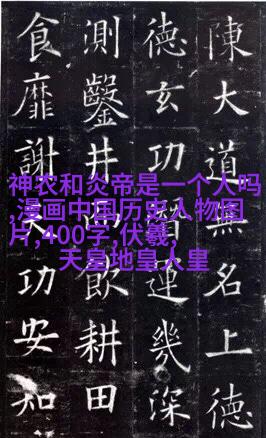 陳大道無名上德
德玄功潛運幾深
測鑿井而飲耕田
食靡謝天功安知
神农和炎帝是一个人吗
,漫画中国历史人物图
片,400字,伏羲,
天皇地皇人皇